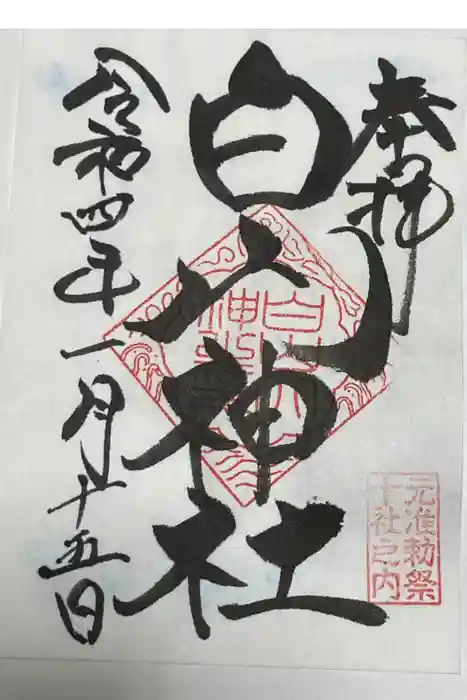 奉拝
白山神社
令和四年一月二十五日
元准勅祭
十社之内